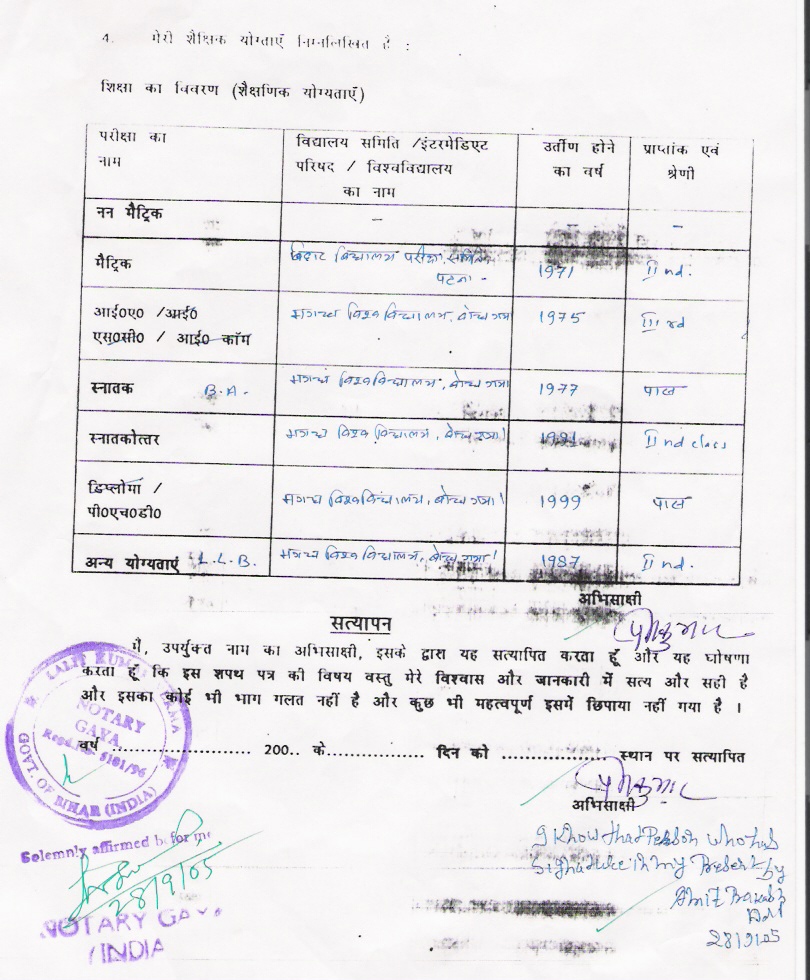 4. मेरी शैक्षिक योग्ताएँ निम्नलिखित है :
शिक्षा का विवरण (शैक्षणिक योग्यताएँ)
परीक्षा का नाम विद्यालय समिति /इंटरमेडिएट परिषद / विश्वविद्यालय का नाम उर्तीण होने का वर्ष प्राप्तांक एवं श्रेणी
नन मैट्रिक – –
मैट्रिक बिहार विद्यालय परीक्षा समिति पटना - 1971 IInd.
आई०ए० /आई०
एस०सी० / आई० कॉम मगध विश्वविद्यालय, बोध गया 1975 III rd
स्नातक B.A. मगध विश्वविद्यालय, बोध गया 1977 पास
स्नातकोत्तर मगध विश्वविद्यालय, बोध गया। 1981 IInd class
डिप्लोमा /
पी०एच०डी० मगध विश्वविद्यालय, बोध गया। 1999 पास
अन्य योग्यताएं L.L.B. मगध विश्वविद्यालय, बोध गया। 1987 IInd.
अभिसाक्षी
सत्यापन
मै, उपर्युक्त नाम का अभिसाक्षी, इसके द्वारा यह सत्यापित करता हूँ और यह घोषणा
करता हूँ कि इस शपथ पत्र की विषय वस्तु मेरे विश्वास और जानकारी में सत्य और सही है
और इसका कोई भी भाग गलत नहीं है और कुछ भी महत्वपूर्ण इसमें छिपाया नहीं गया है ।
वर्ष ........................ 200.. के................. दिन को .................. स्थान पर सत्यापित
अभिसाक्षी
LALIT KUMAR
NOTARY
GAYA
Regd. No. 5101/96
GOVT. OF BIHAR (INDIA)
Solemnly affirmed before me
28/9/05
NOTARY GAYA
(INDIA
I Know that Person who has
Signature in my Present by
Amit Prakash
Adv
28/9/05